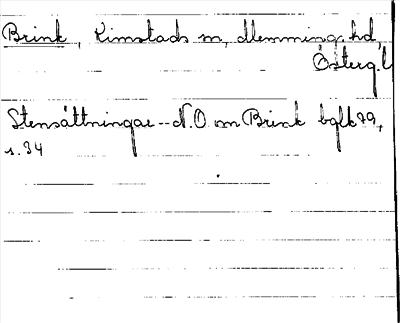 Brink, Kimstads sn, Memming. hd,
Österg.l
Stensättningar -- N.O om Brink bglk 79,
s. 34